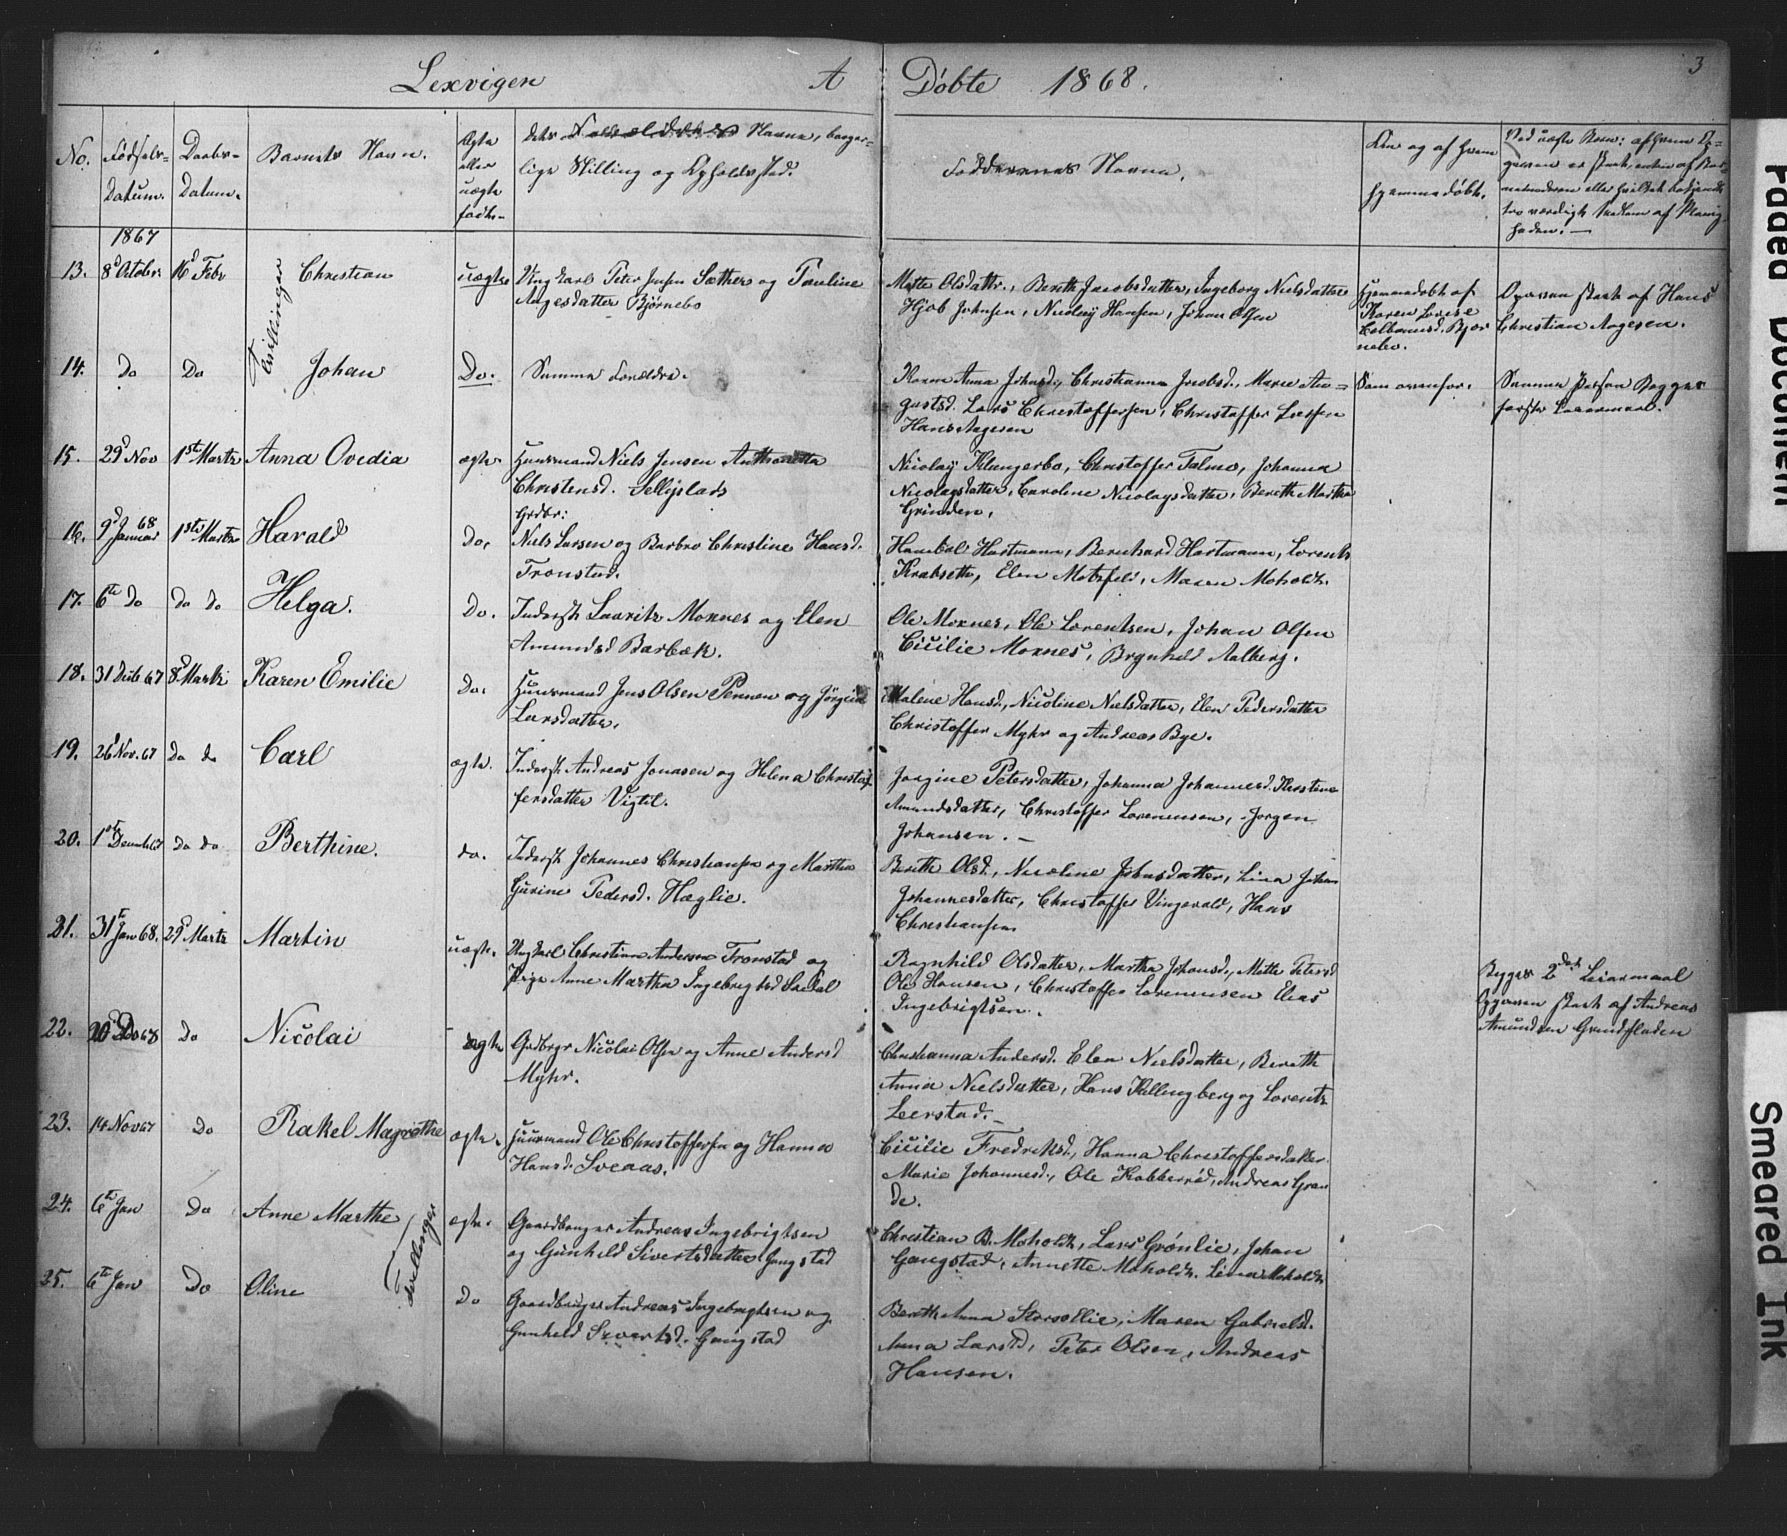 Lexvigen A Døbte 1868. 3
No. Fødsels- Datum. Daabs- Datum. Barnets Navn. Ægte eller uægte født. dets Navne, borger-
lige Stilling og Opholdssted. Faddernes Navne. Om og af hvem hjemmedøbt.
1867
13. 8d October 16d Febr Christian uægte Ung Karl Peter Jensen Sæther og Pauline
Aagesdatter Bjørnebo
Mette Olsdattr., Bereth Jacobsdatter, Ingeborg Nielsdatter
Johnsen, Nicolay Hansen, Johan Olsen
Hjemmedøbt af
Karen Lovise
Bjør
nebo.
Opgaven skeet af Hans
Christian Aagesen.
Tvillinger
14. Do Do Johan Do. Samme Forældre.
Anna Johnsd., Christianna Jacobsd., Marie Au=
gustd. Lars Christoffersen, Christoffer Larsen
Hans Aagesen
Som ovenfor.
Samme Person Begges
første Leiermaal.
15. 29d Nov 1ste Marts Anna Ovedia ægte. Huusmand Niels Jensen
Christensd. Sellislads
Nicolay Klungerbo, Christoffer Talmo, Johanna
Nicolaysdatter, Caroline Nicolaysdatter, Bereth Martha
Grinden.
16. 9d Januar 68 1ste Marts Harald Do. Grdbr:
Niels Larsen og Barbro Christine Hansd.
Tronstad.
Hartmann, Bernhard Hartmann, Lorents
Krabseth, Elen Motzfeld, Maren Moholdt.
17. 6te Do Do do Helga. Do. Inderst Lauritz Moxnes og Elen
Amundsd Barbæk.
Ole Moxnes, Ole Lorentsen, Johan Olsen
Cicilie Moxnes, Brynhild Aalberg.
18. 31 Decb 67 8d Marts Karen Emilie Do. Huusmand Jens Olsen og Jørgine
Larsdatter.
Malene Hansd., Nicoline Nielsdatter, Elen Pedersdatter
Christoffer Myhr og Andreas Bye.
19. 26d Nov. 67 Do do Carl ægte. Inderst Andreas Jonasen og Helena Christof
fersdatter Vigtil.
Jørgine Petersdatter, Johanna Johannesd. Kerstine
Amundsdatter, Christoffer Lorentsen, Jørgen
Johansen. —
20. 1ste Decemb 67 Do do Berthine. do. Inderst Johannes Christiansen og Martha
Gurine Pedersd. Hæglie.
Bereth Olsd., Nicoline Johnsdatter, Lina Johan
Johannesdatter, Christoffer Vingevald, Hans
Christiansen
21. 31te Jan 68. 29d Marts Martin uægte. Ungkarl Christian Andersen Tronstad og
Pige Anne Martha Ingebrigtsd
Ragnhild Olsdatter, Martha Johansd., Mette Petersd
Ole Hansen, Christoffer Lorentsen Elias
Ingebrigtsen.
Begges 2det Leiermaal
Opgaven skeet af Andreas
Amundsen Grandfladen
22. 20d Do 68 Do Nicolai ægte Grdbrgr Nicolai Olsen og Anne Andersd
Myhr.
Christianna Andersd. Elen Nielsdatter, Bereth
Anna Nielsdatter, Hans Killingberg og Lorents
Leerstad. —
23. 14 Nov 67 Do Rakel Magrethe ægte. Huusmand Ole Christoffersen og Hanna
Hansd. Sveaas.
Cicilie Fredriksd., Hanna Christoffersdatter
Marie Johannesd., Ole Kobberrød, Andreas Gran
de.
24. 6te Jan Do Anne Marthe ægte. Gaardbruger Andreas Ingebrigtsen
og Gunhild Sivertsdatter Gangstad
Christian B. Moholdt, Lars Grønlie, Johan
Gangstad, Annette Moholdt, Lina Moholdt
Tvillinger
25. 6te Jan Do Oline Do Gaardbruger Andreas Ingebrigtsen og
Gunhild Sivertsd. Gangstad
Bereth Anna Storsollie, Maren Gabrielsd.
Anna Larsd, Peter Olsen, Andreas
Hansen.
Faded Document
Smeared Ink